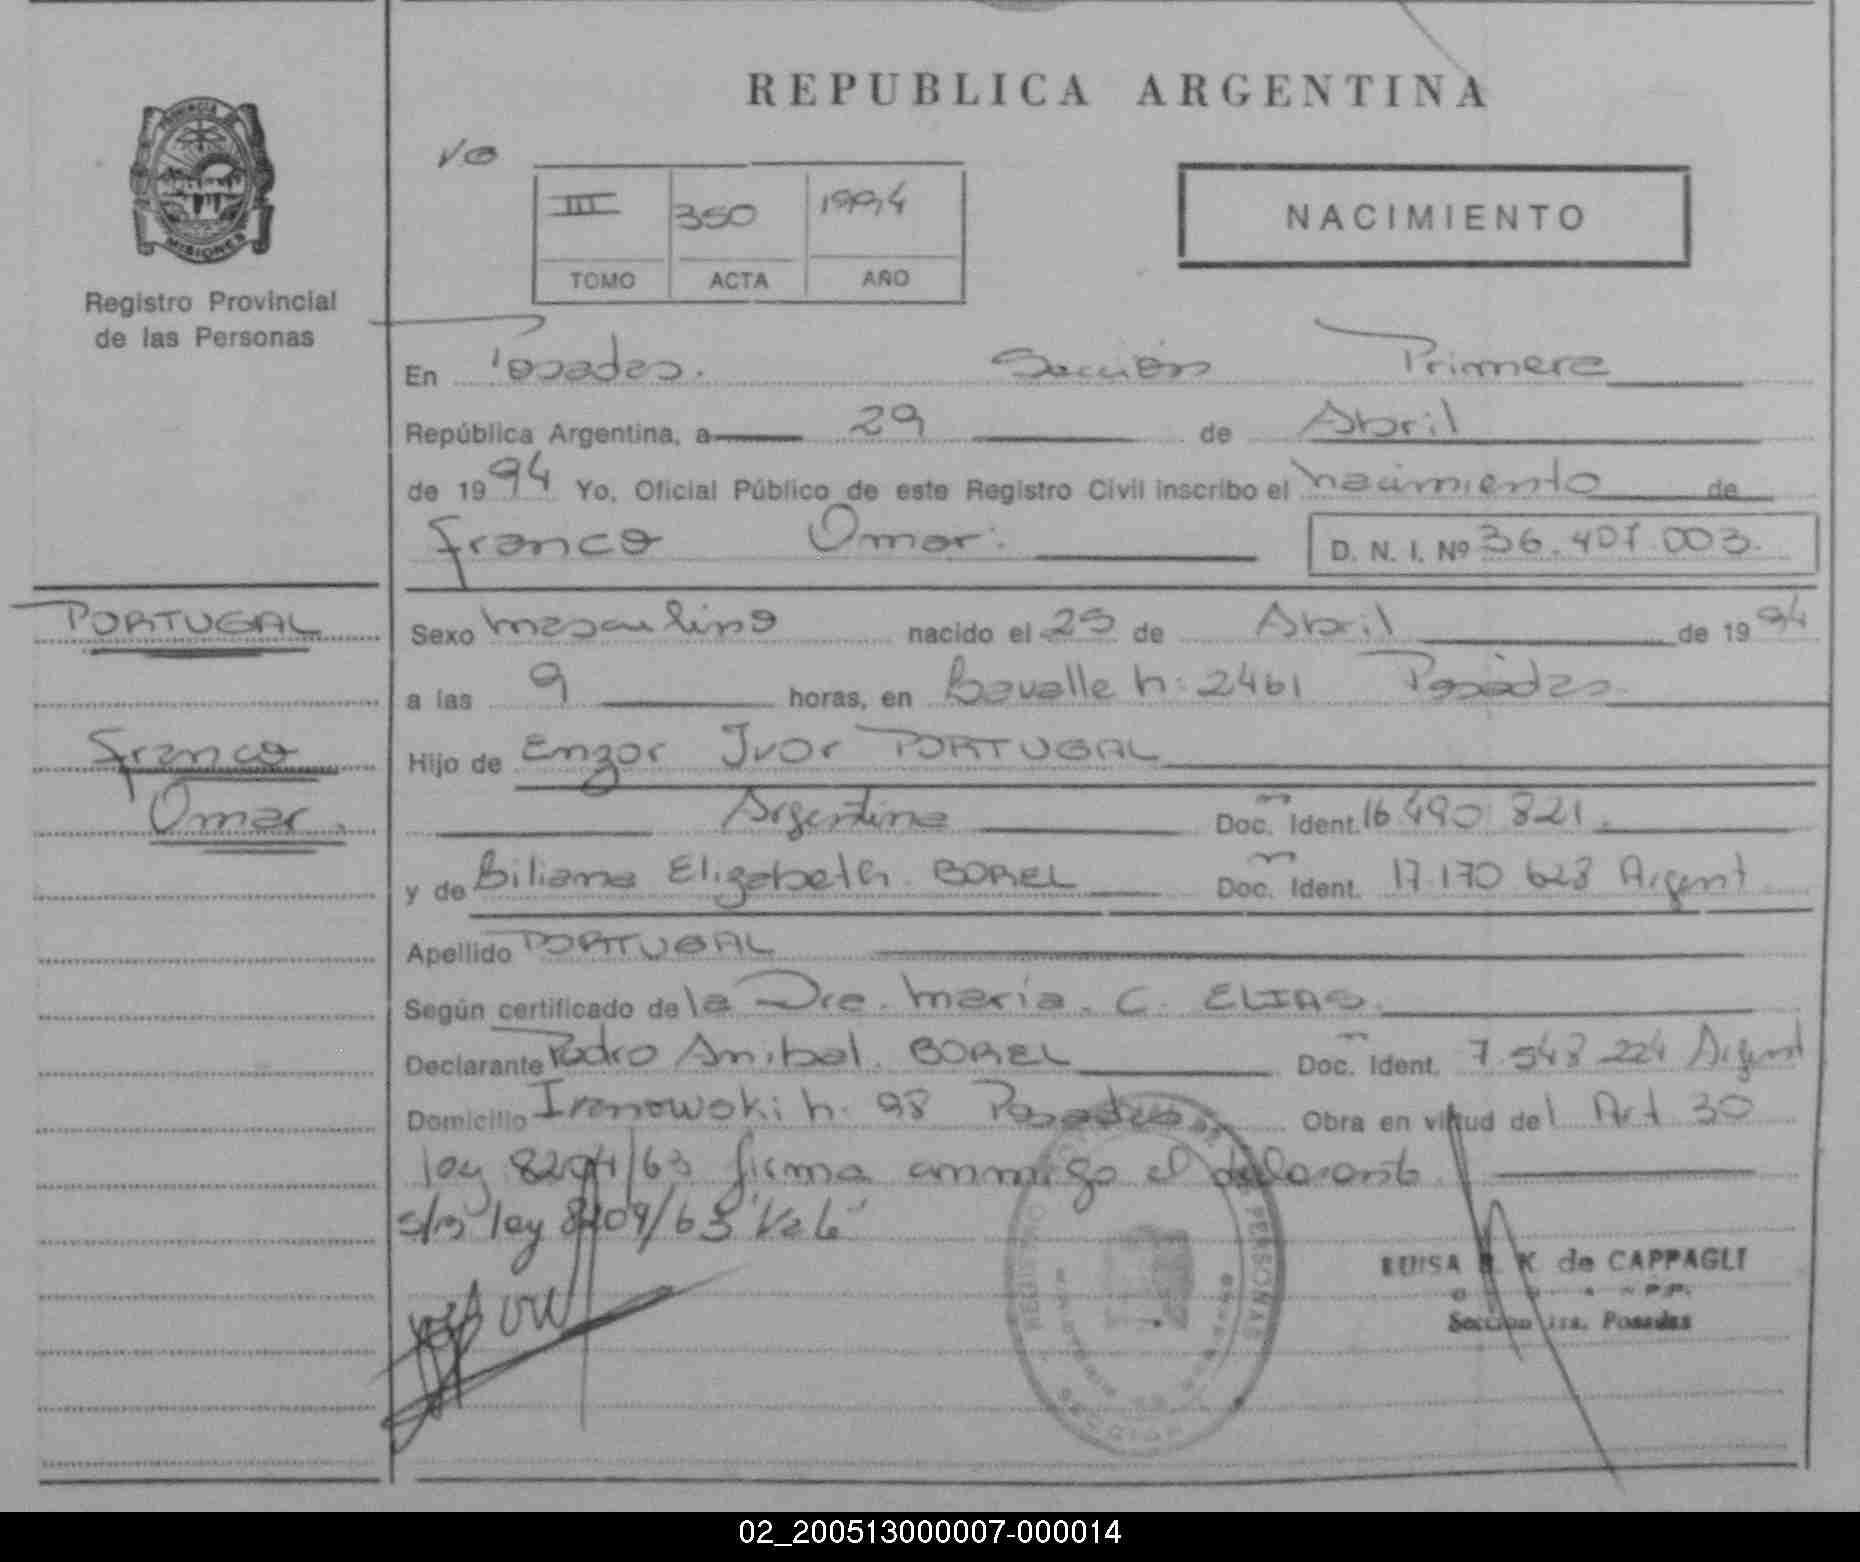 REPUBLICA ARGENTINA
PROVINCIA
MISIONES
Registro Provincial
de las Personas
III 350 1994
TOMO ACTA AÑO
NACIMIENTO
En Posadas. Sección Primera
República Argentina, a 29 de Abril
de 1994 Yo, Oficial Público de este Registro Civil inscribo el nacimiento de
Franco Omar.
D. N. I. Nº 36.407.003.
PORTUGAL
Franco
Omar.
Sexo masculino nacido el 25 de Abril de 1994
a las 9 horas, en Lavalle n: 2461 Posadas
Hijo de Enzor Ivor PORTUGAL
Argentina Doc. Ident. 16.490.821.
y de Liliana Elizabeth BOREL Doc. Ident. 17.170.623 Argent
Apellido PORTUGAL
Según certificado de la Dra. María. C. ELIAS.
Declarante Pedro Anibal. BOREL Doc. Ident. 7.543.224 Argent
Domicilio n. 98 Posadas Obra en virtud del Art 30
ley 8204/63 firma conmigo el
s/r ley 8204/63 "Vale"
LUISA K de CAPPAGLI
Sección 1ra. Posadas
REGISTRO PERSONAS
SECCION
02_200513000007-000014